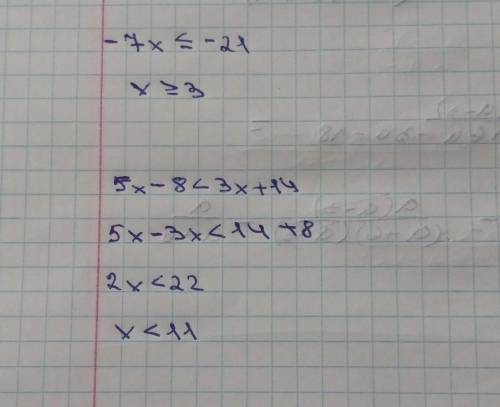 -7x ≤ -21
x ≥ 3
5x - 8 < 3x + 14
5x - 3x < 14 + 8
2x < 22
x < 11